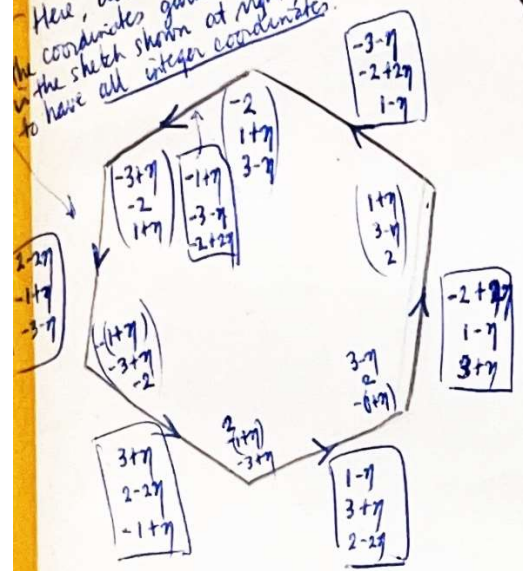 Here,
the coordinates
in the sketch shown at
to have all integer coordinates.
-3-η
-2+2η
1-η
-2
1+η
3-η
-3+η
-2
1+η
-1+η
-3-η
-2+2η
1+η
3-η
2
2-2η
-1+η
-3-η
-2+2η
1-η
3+η
-(1+η)
-3+η
-2
3-η
2
-(1+η)
2
-(1+η)
-3+η
3+η
2-2η
-1+η
1-η
3+η
2-2η